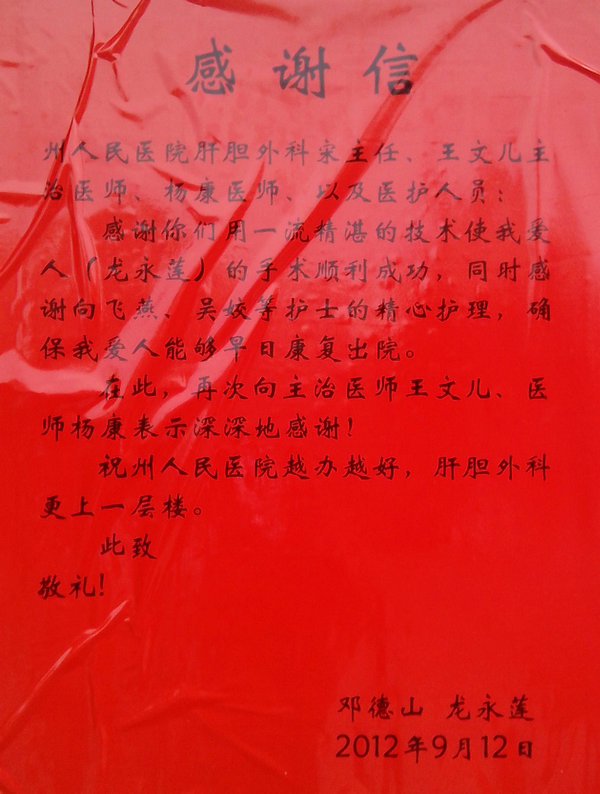 感谢信
州人民医院肝胆外科宋主任、王文儿主
治医师、杨康医师、以及医护人员：
感谢你们用一流精湛的技术使我爱
人（龙永莲）的手术顺利成功，同时感
谢向飞燕、吴姣等护士的精心护理，确
保我爱人能够早日康复出院。
在此，再次向主治医师王文儿、医
师杨康表示深深地感谢！
祝州人民医院越办越好，肝胆外科
更上一层楼。
此致
敬礼！
邓德山 龙永莲
2012年9月12日